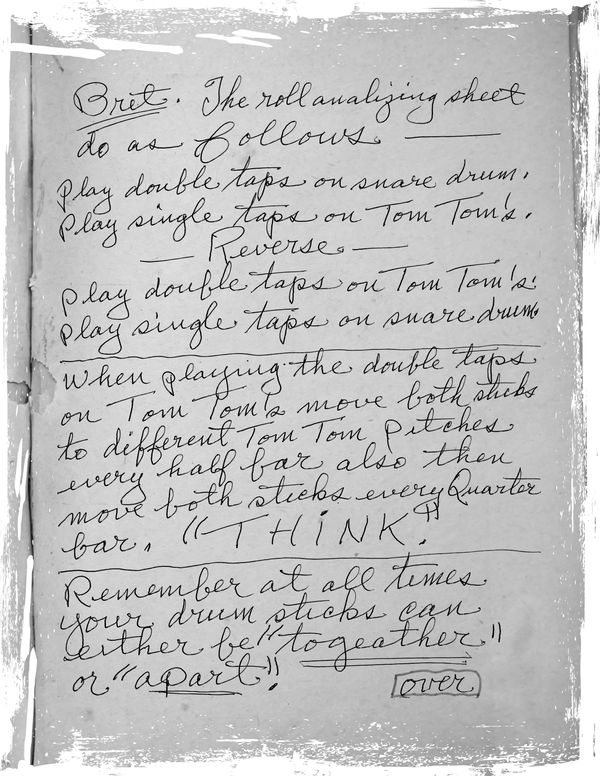 Bret. The roll analizing sheet
do as follows. —
play double taps on snare drum.
play single taps on Tom Tom's.
— Reverse. —
play double taps on Tom Tom's.
play single taps on snare drum.
When playing the double taps
on Tom Tom's move both sticks
to different Tom Tom pitches
every half bar also then
move both sticks every Quarter
bar. "THiNK."
Remember at all times
your drum sticks can
either be "togeather"
or "apart".
over